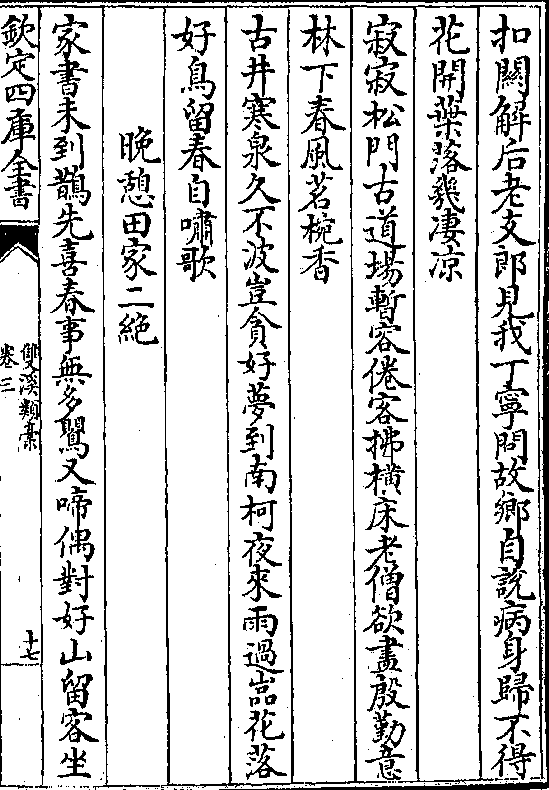 扣關解后老支郎見我丁寧問故鄉自說病身歸不得
花開葉落幾淒凉
寂寂松門古道場暫容倦客拂橫床老僧欲盡殷勤意
林下春風茗椀香
古井寒泉久不波豈貪好夢到南柯夜來雨過岩花落
好鳥留春自嘯歌
晚憩田家二絶
家書未到鵲先喜春事無多鸎又啼偶對好山留客坐
欽定四庫全書
雙溪類藁
卷三
十七